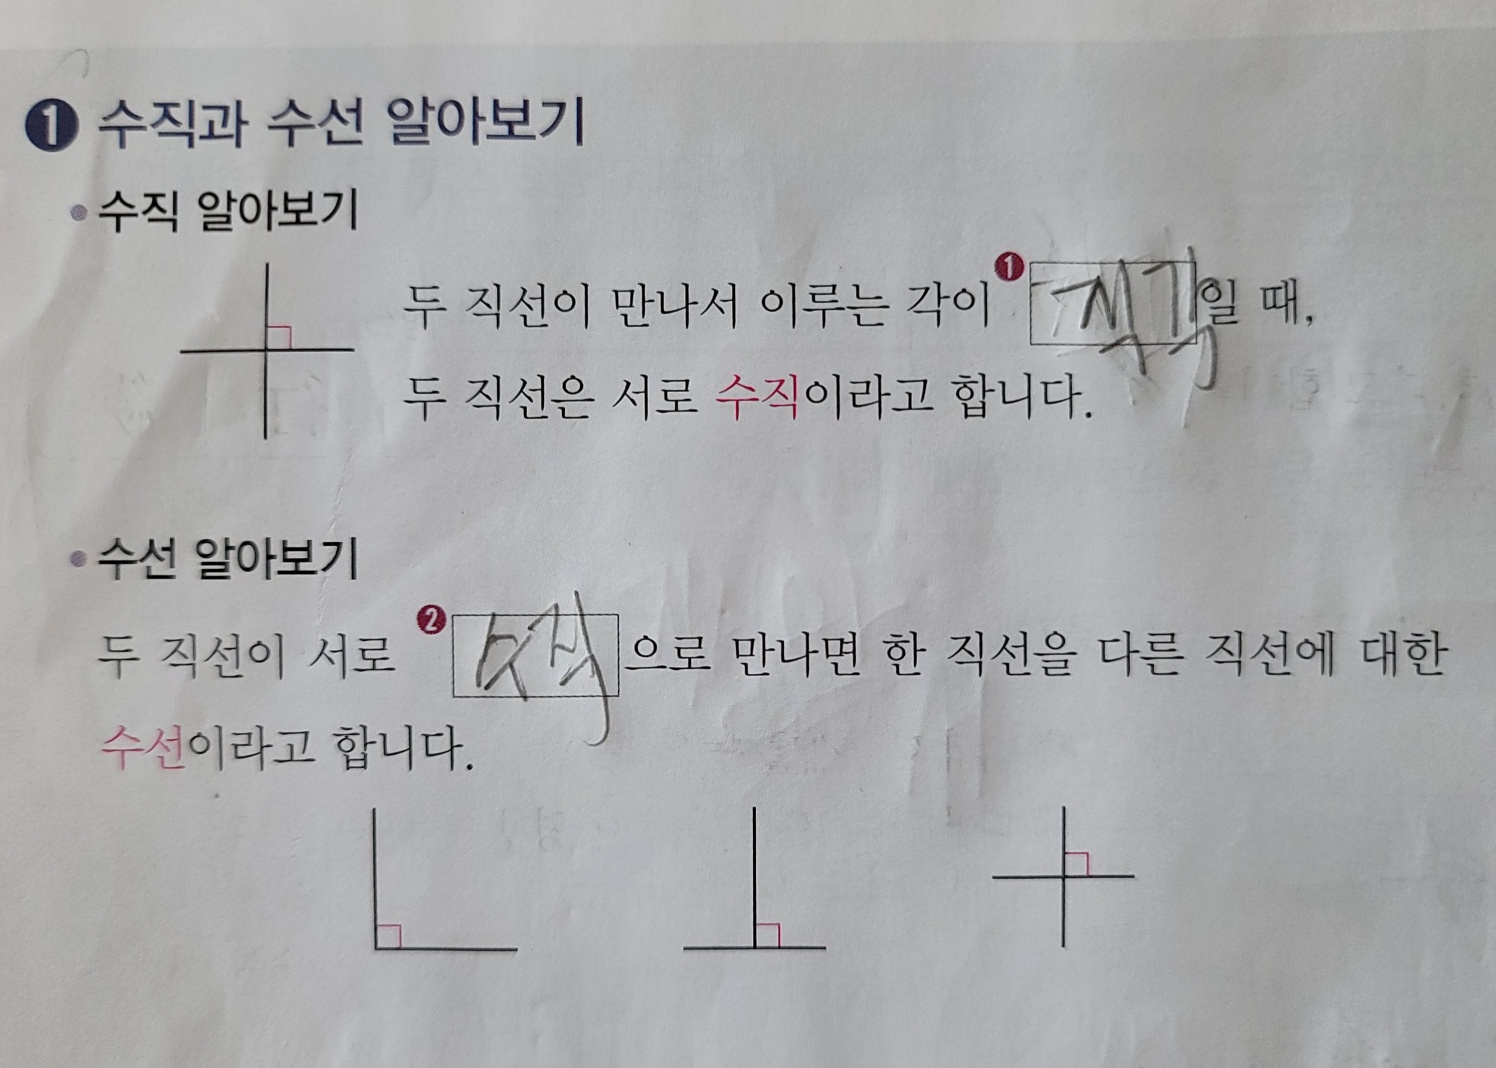 1 수직과 수선 알아보기
• 수직 알아보기
두 직선이 만나서 이루는 각이 1 직각일 때,
두 직선은 서로 수직이라고 합니다.
• 수선 알아보기
두 직선이 서로 2 수직으로 만나면 한 직선을 다른 직선에 대한
수선이라고 합니다.